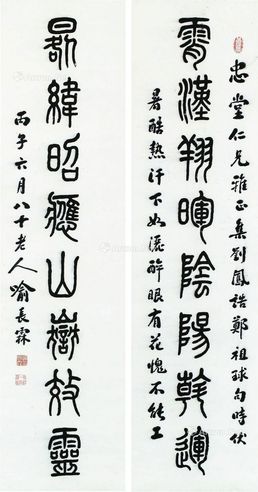 忠堂仁兄雅正集劉鳳誥鄭祖球句時伏
霄漢翔暉陰陽乾運
暑酷熱汗下如流醉眼有花愧不能工
晷緯昭應山嶽效靈
丙午六月八十老人喻長霖